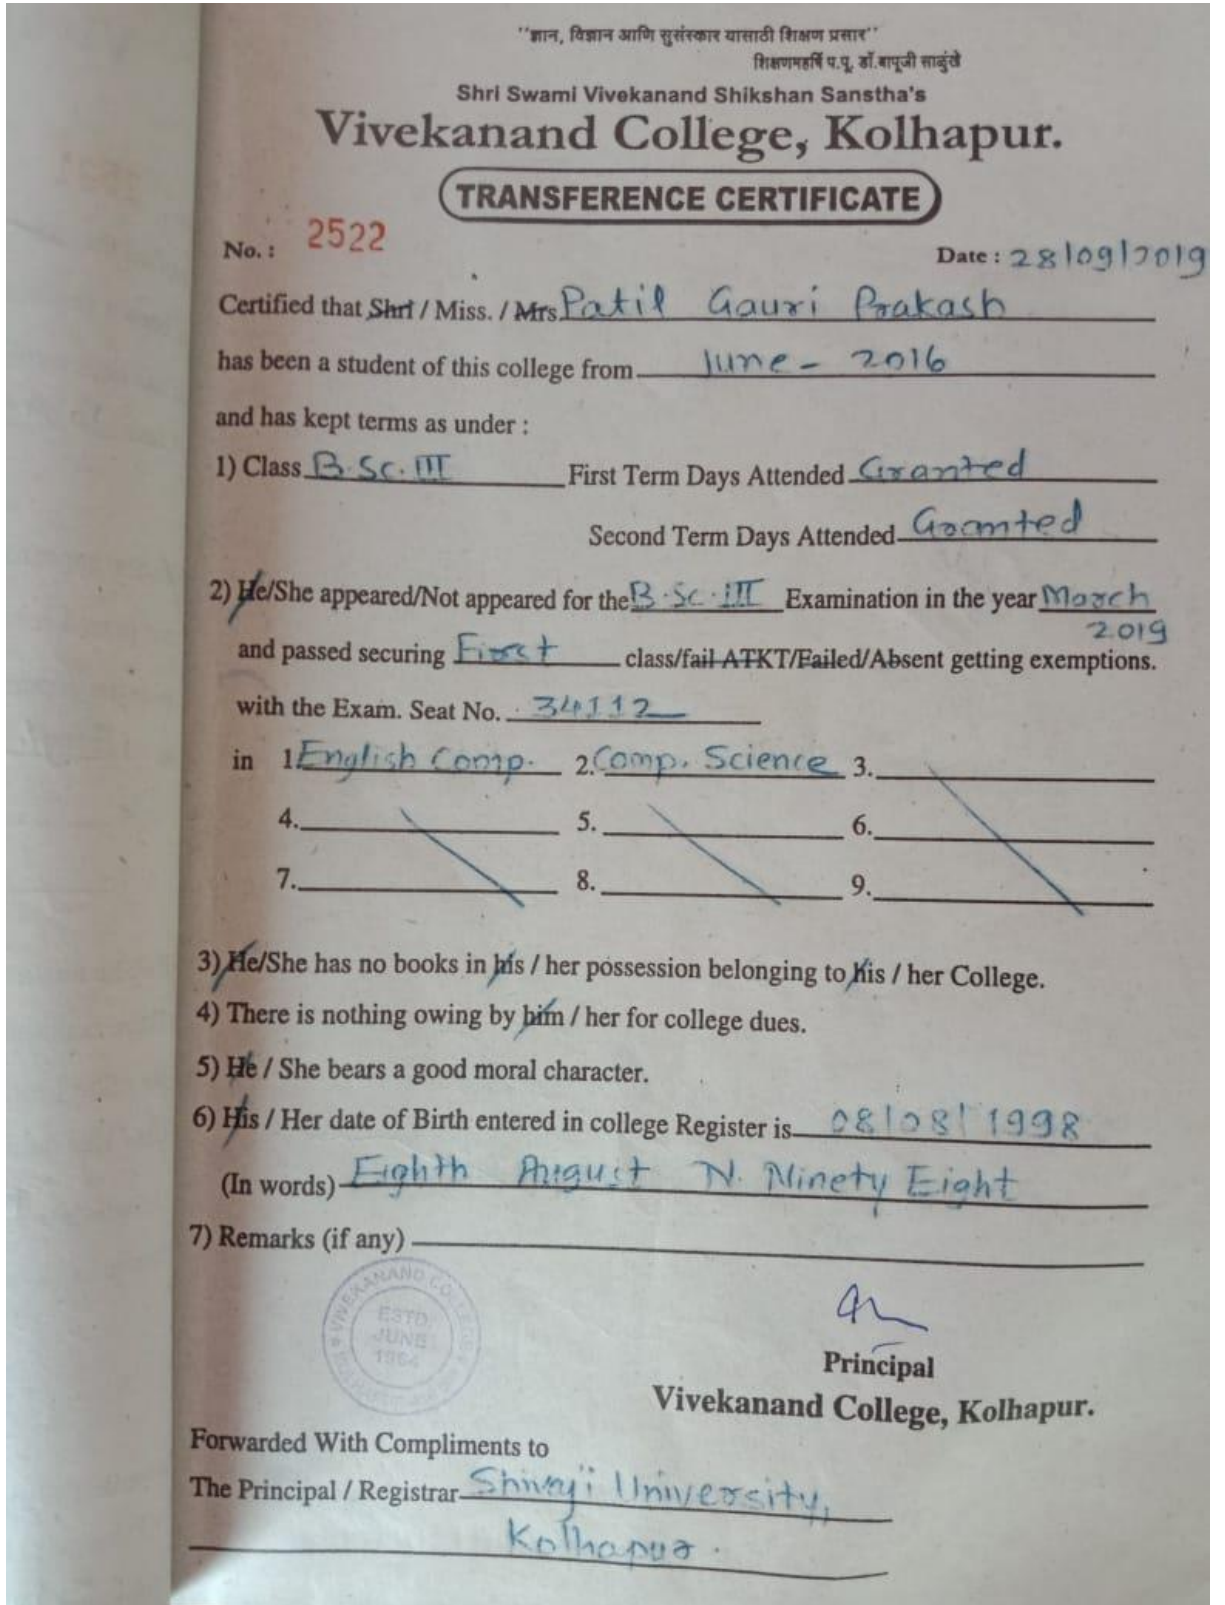 "ज्ञान, विज्ञान आणि सुसंस्कार यासाठी शिक्षण प्रसार"
शिक्षणमहर्षि प.पू. डॉ.बापूजी साळुंखे
Shri Swami Vivekanand Shikshan Sanstha's
Vivekanand College, Kolhapur.
TRANSFERENCE CERTIFICATE
No. : 2522
Date : 28/09/2019
Certified that Shri / Miss. / Mrs Patil Gauri Prakash
has been a student of this college from June - 2016
and has kept terms as under :
1) Class B.Sc. III First Term Days Attended Granted
Second Term Days Attended Granted
2) He/She appeared/Not appeared for the B.Sc. III Examination in the year March
2019
and passed securing First class/fail ATKT/Failed/Absent getting exemptions.
with the Exam. Seat No. 34112
in 1 English Comp. 2. Comp. Science 3.
4. 5. 6.
7. 8. 9.
3) He/She has no books in his / her possession belonging to his / her College.
4) There is nothing owing by him / her for college dues.
5) He / She bears a good moral character.
6) His / Her date of Birth entered in college Register is 08/08/1998
(In words) Eighth August N. Ninety Eight
7) Remarks (if any)
VIVEKANAND COLLEGE
ESTD.
JUNE
1964
Principal
Vivekanand College, Kolhapur.
Forwarded With Compliments to
The Principal / Registrar Shivaji University,
Kolhapur.